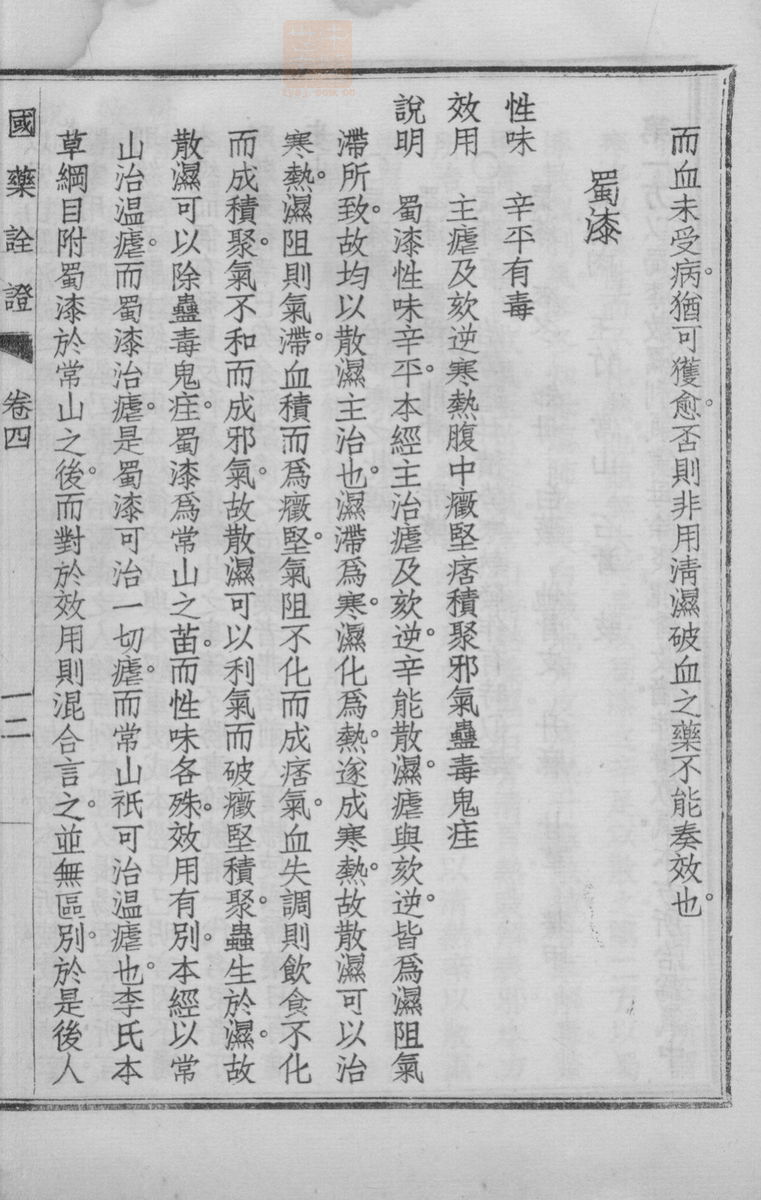 而血未受病。猶可獲愈。否則非用淸濕破血之藥不能奏效也。
蜀漆
性味　辛平有毒
效用　主瘧及欬逆寒熱腹中癥堅痞積聚邪氣蠱毒鬼疰
說明　蜀漆性味辛平。本經主治瘧及欬逆。辛能散濕。瘧與欬逆。皆爲濕阻氣
滯所致。故均以散濕主治也。濕滯爲寒。濕化爲熱。遂成寒熱。故散濕可以治
寒熱。濕阻則氣滯。血積而爲癥堅。氣阻不化而成痞。氣血失調則飲食不化
而成積聚。氣不和而成邪氣。故散濕可以利氣而破癥堅積聚。蟲生於濕。故
散濕可以除蠱毒鬼疰。蜀漆爲常山之苗。而性味各殊。效用有別。本經以常
山治温瘧。而蜀漆治瘧。是蜀漆可治一切瘧。而常山祇可治温瘧也。李氏本
草綱目附蜀漆於常山之後。而對於效用則混合言之。並無區別。於是後人
國藥詮證　卷四　一二